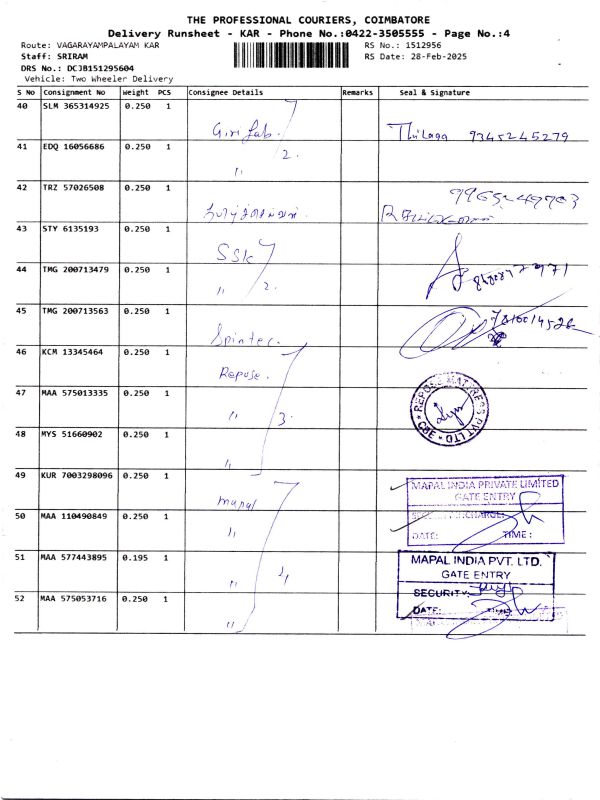 THE PROFESSIONAL COURIERS, COIMBATORE
Delivery Runsheet - KAR - Phone No.:0422-3505555 - Page No.:4
Route: VAGARAYAMPALAYAM KAR RS No.: 1512956
Staff: SRIRAM RS Date: 28-Feb-2025
DRS No.: DCJB151295604
Vehicle: Two Wheeler Delivery
S No Consignment No Weight PCS Consignee Details Remarks Seal & Signature
40 SLM 365314925 0.250 1
Giri Lab. Thilaga 9345245279
41 EDQ 16056686 0.250 1
2.
"
42 TRZ 57026508 0.250 1
43 STY 6135193 0.250 1
SSK
44 TMG 200713479 0.250 1
" 2.
45 TMG 200713563 0.250 1
Spintec.
46 KCM 13345464 0.250 1
Repose.
47 MAA 575013335 0.250 1
" 3.
REPOSE MATTRESS PVT LTD * CBE *
48 MYS 51660902 0.250 1
"
49 KUR 7003298096 0.250 1
mapal
MAPAL INDIA PRIVATE LIMITED
GATE ENTRY
50 MAA 110490849 0.250 1
"
DATE: TIME:
51 MAA 577443895 0.195 1
" 4
MAPAL INDIA PVT. LTD.
GATE ENTRY
SECURITY:
52 MAA 575053716 0.250 1
DATE:
"